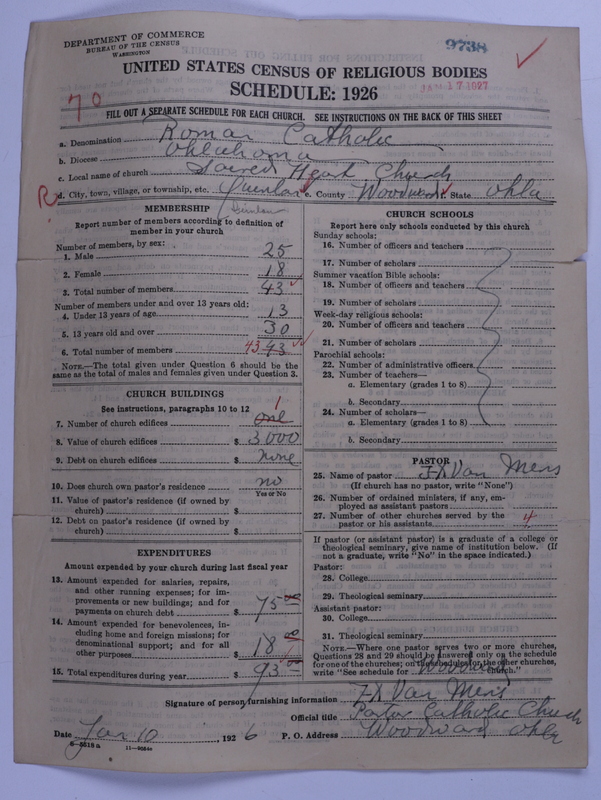 DEPARTMENT OF COMMERCE
BUREAU OF THE CENSUS
WASHINGTON
9738
UNITED STATES CENSUS OF RELIGIOUS BODIES
SCHEDULE: 1926
JAN 17 1927
70
FILL OUT A SEPARATE SCHEDULE FOR EACH CHURCH. SEE INSTRUCTIONS ON THE BACK OF THIS SHEET
a. Denomination Roman Catholic
b. Diocese Oklahoma
c. Local name of church Sacred Heart Church
R d. City, town, village, or township, etc. Quinlan e. County Woodward f. State Okla
Quinlan
MEMBERSHIP
Report number of members according to definition of
member in your church
Number of members, by sex:
1. Male 25
2. Female 18
3. Total number of members 43
Number of members under and over 13 years old:
4. Under 13 years of age 13
5. 13 years old and over 30
6. Total number of members 43 43
NOTE.—The total given under Question 6 should be the
same as the total of males and females given under Question 3.
CHURCH BUILDINGS
See instructions, paragraphs 10 to 12
7. Number of church edifices one 1
8. Value of church edifices $ 3000
9. Debt on church edifices $ none
10. Does church own pastor's residence no
Yes or No
11. Value of pastor's residence (if owned by
church) $
12. Debt on pastor's residence (if owned by
church) $
EXPENDITURES
Amount expended by your church during last fiscal year
13. Amount expended for salaries, repairs,
and other running expenses; for im-
provements or new buildings; and for
payments on church debt $ 75 00
14. Amount expended for benevolences, in-
cluding home and foreign missions; for
denominational support; and for all
other purposes $ 18 00
15. Total expenditures during year $ 93 00
CHURCH SCHOOLS
Report here only schools conducted by this church
Sunday schools:
16. Number of officers and teachers
17. Number of scholars
Summer vacation Bible schools:
18. Number of officers and teachers
19. Number of scholars
Week-day religious schools:
20. Number of officers and teachers
21. Number of scholars
Parochial schools:
22. Number of administrative officers
23. Number of teachers—
a. Elementary (grades 1 to 8)
b. Secondary
24. Number of scholars—
a. Elementary (grades 1 to 8)
b. Secondary
PASTOR
25. Name of pastor F X Van Mens
(If church has no pastor, write "None")
26. Number of ordained ministers, if any, em-
ployed as assistant pastors
27. Number of other churches served by the
pastor or his assistants 4
If pastor (or assistant pastor) is a graduate of a college or
theological seminary, give name of institution below. (If
not a graduate, write "No" in the space indicated.)
Pastor:
28. College
29. Theological seminary
Assistant pastor:
30. College
31. Theological seminary
NOTE.—Where one pastor serves two or more churches,
Questions 28 and 29 should be answered only on the schedule
for one of the churches; on the schedules for the other churches,
write "See schedule for Woodward church."
Signature of person furnishing information F X Van Mens
Official title Pastor Catholic Church
Date Jan 10, 1926 P. O. Address Woodward Okla
6-5518 a